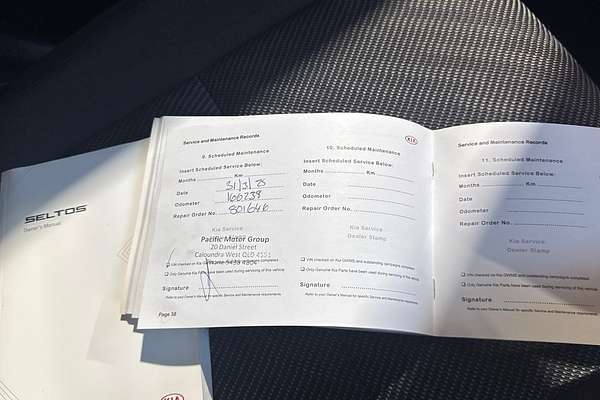 SELTOS
Owner's Manual
KIA
Service and Maintenance Records
9. Scheduled Maintenance
Insert Scheduled Service Below:
Months Km
Date 31/3/25
Odometer 166238
Repair Order No. 801646
Kia Service
Pacific Motor Group
20 Daniel Street
Caloundra West QLD 4551
Phone 5438 4804
VIN checked on Kia GWMS and outstanding campaigns completed
Only Genuine Kia Parts have been used during servicing of this vehicle
Signature
Refer to your Owner's Manual for specific Service and Maintenance requirements.
Page 38
KIA
10. Scheduled Maintenance
Insert Scheduled Service Below:
Months Km
Date
Odometer
Repair Order No.
Kia Service
Dealer Stamp
VIN checked on Kia GWMS and outstanding campaigns completed
Only Genuine Kia Parts have been used during servicing of this vehicle
Signature
Refer to your Owner's Manual for specific Service and Maintenance requirements.
Service and Maintenance Records
11. Scheduled Maintenance
Insert Scheduled Service Below:
Months Km
Date
Odometer
Repair Order No.
Kia Service
Dealer Stamp
VIN checked on Kia GWMS and outstanding campaigns completed
Only Genuine Kia Parts have been used during servicing of this vehicle
Signature
Refer to your Owner's Manual for specific Service and Maintenance requirements.